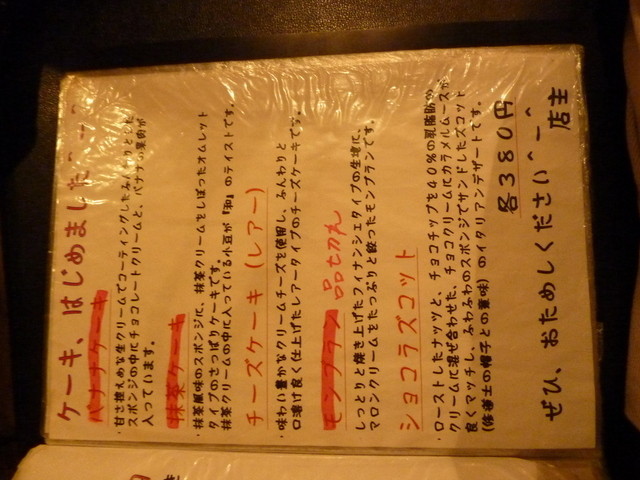 ケーキ、はじめました^ー^
バナナケーキ
・甘さ控えめな生クリームでコーティングしたふんわりとした
スポンジの中にチョコレートクリームと、バナナの果肉が
入っています。
抹茶ケーキ
・抹茶風味のスポンジに、抹茶クリームをしぼったオムレット
タイプのさっぱりケーキです。
抹茶クリームの中に入っている小豆が『和』のテイストです。
チーズケーキ(レアー)
・味わい豊かなクリームチーズを使用し、ふんわりと
口溶け良く仕上げたレアータイプのチーズケーキです。
モンブラン 品切れ
しっとりと焼き上げたフィナンシェタイプの生地に、
マロンクリームをたっぷりと絞ったモンブランです。
ショコラズコット
・ローストしたナッツと、チョコチップを40%の乳脂肪の
クリームに混ぜ合わせた、チョコクリームにカラメルムースが
良くマッチし、ふわふわのスポンジでサンドしたズコット
(修道士の帽子との意味)のイタリアンデザートです。
各380円
ぜひ、おためしください^ー^
店主